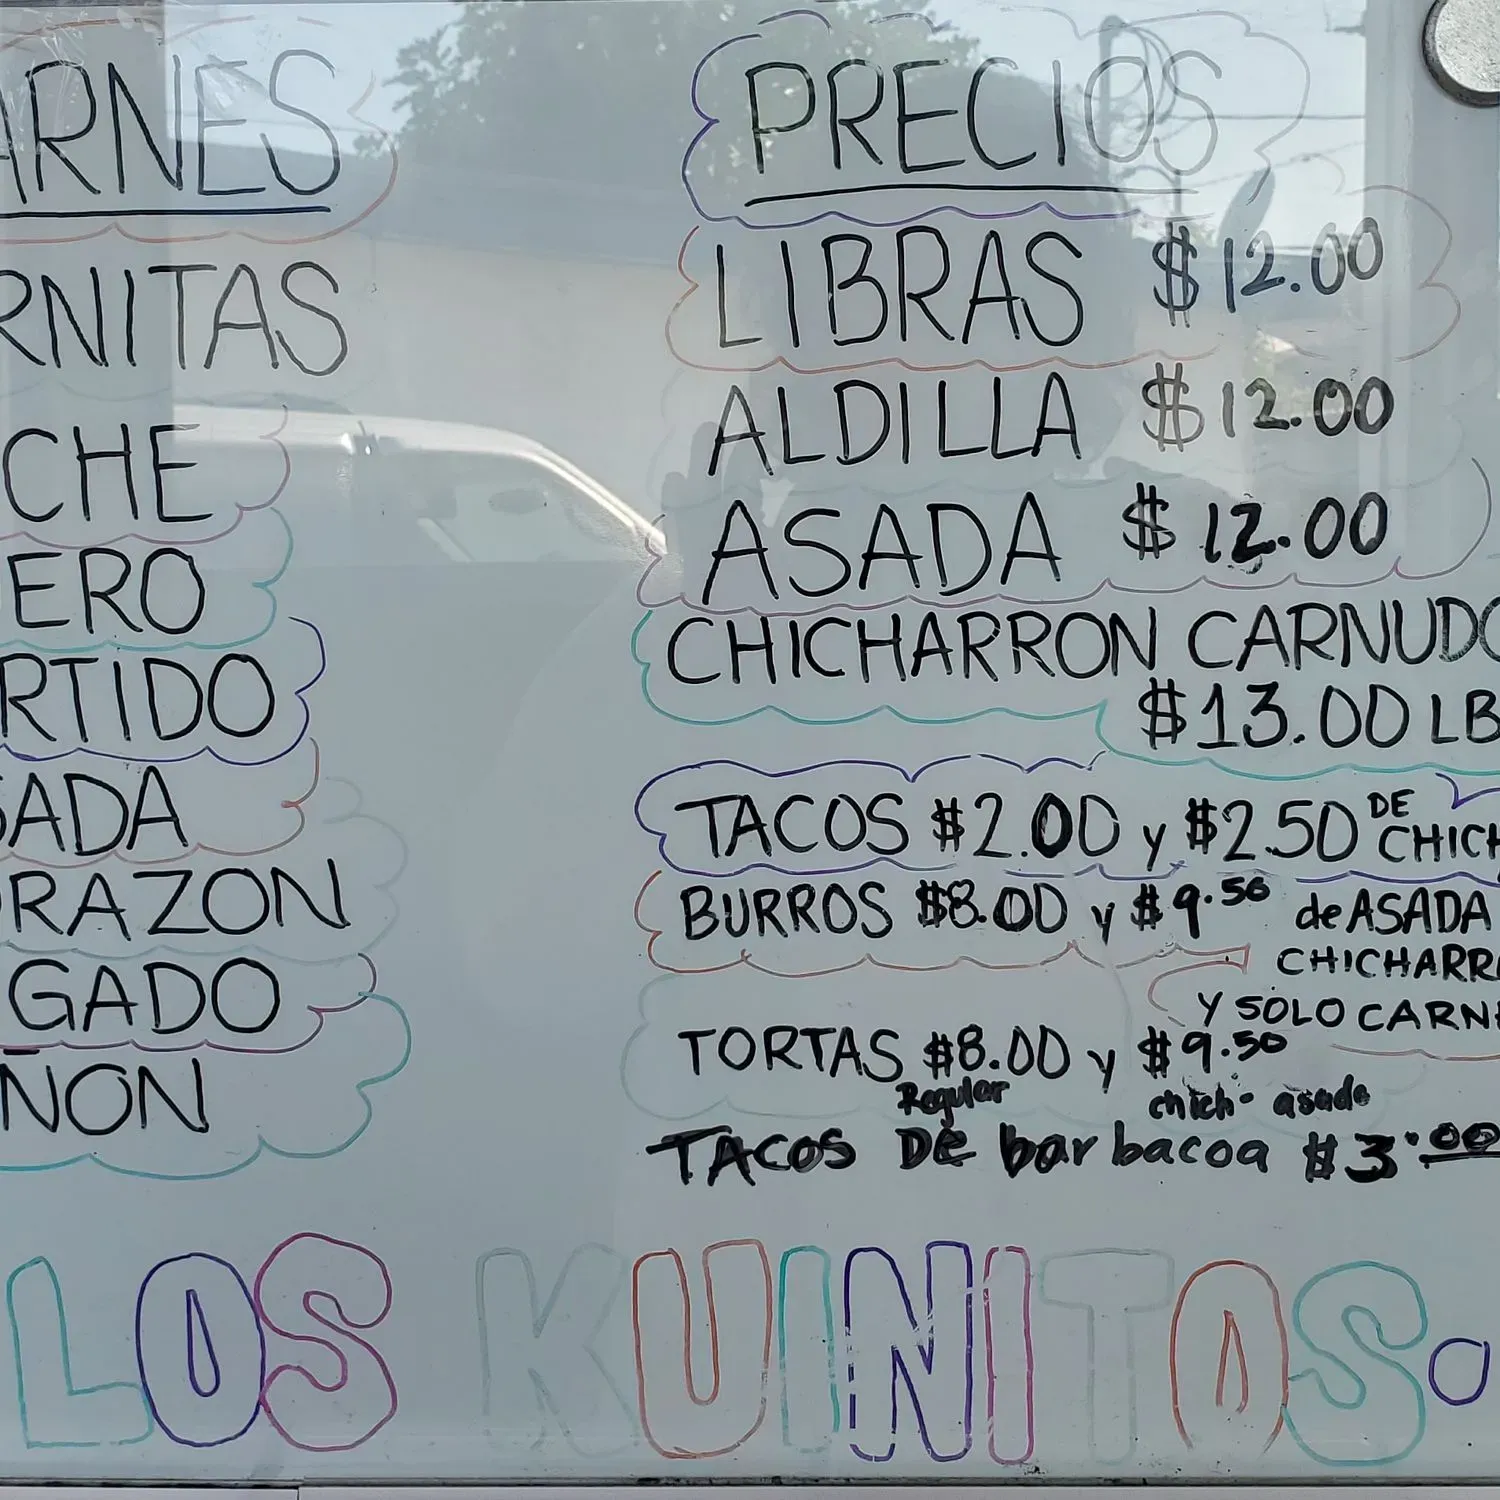 ARNES
RNITAS
CHE
ERO
RTIDO
SADA
ORAZON
GADO
ÑON
PRECIOS
LIBRAS $12.00
ALDILLA $12.00
ASADA $12.00
CHICHARRON CARNUDO
$13.00 LB
TACOS $2.00 y $2.50 DE CHICH
BURROS $8.00 y $9.50 de ASADA
CHICHARR
Y SOLO CARN
TORTAS $8.00 y $9.50
Regular chich. asada
TACOS DE barbacoa $3.00
LOS KUINITOS.